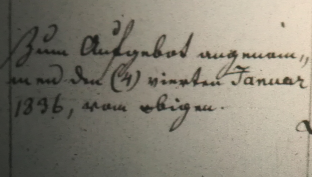 Zum Aufgebot angenom„
men den (4) vierten Januar
1836, vom obigen.